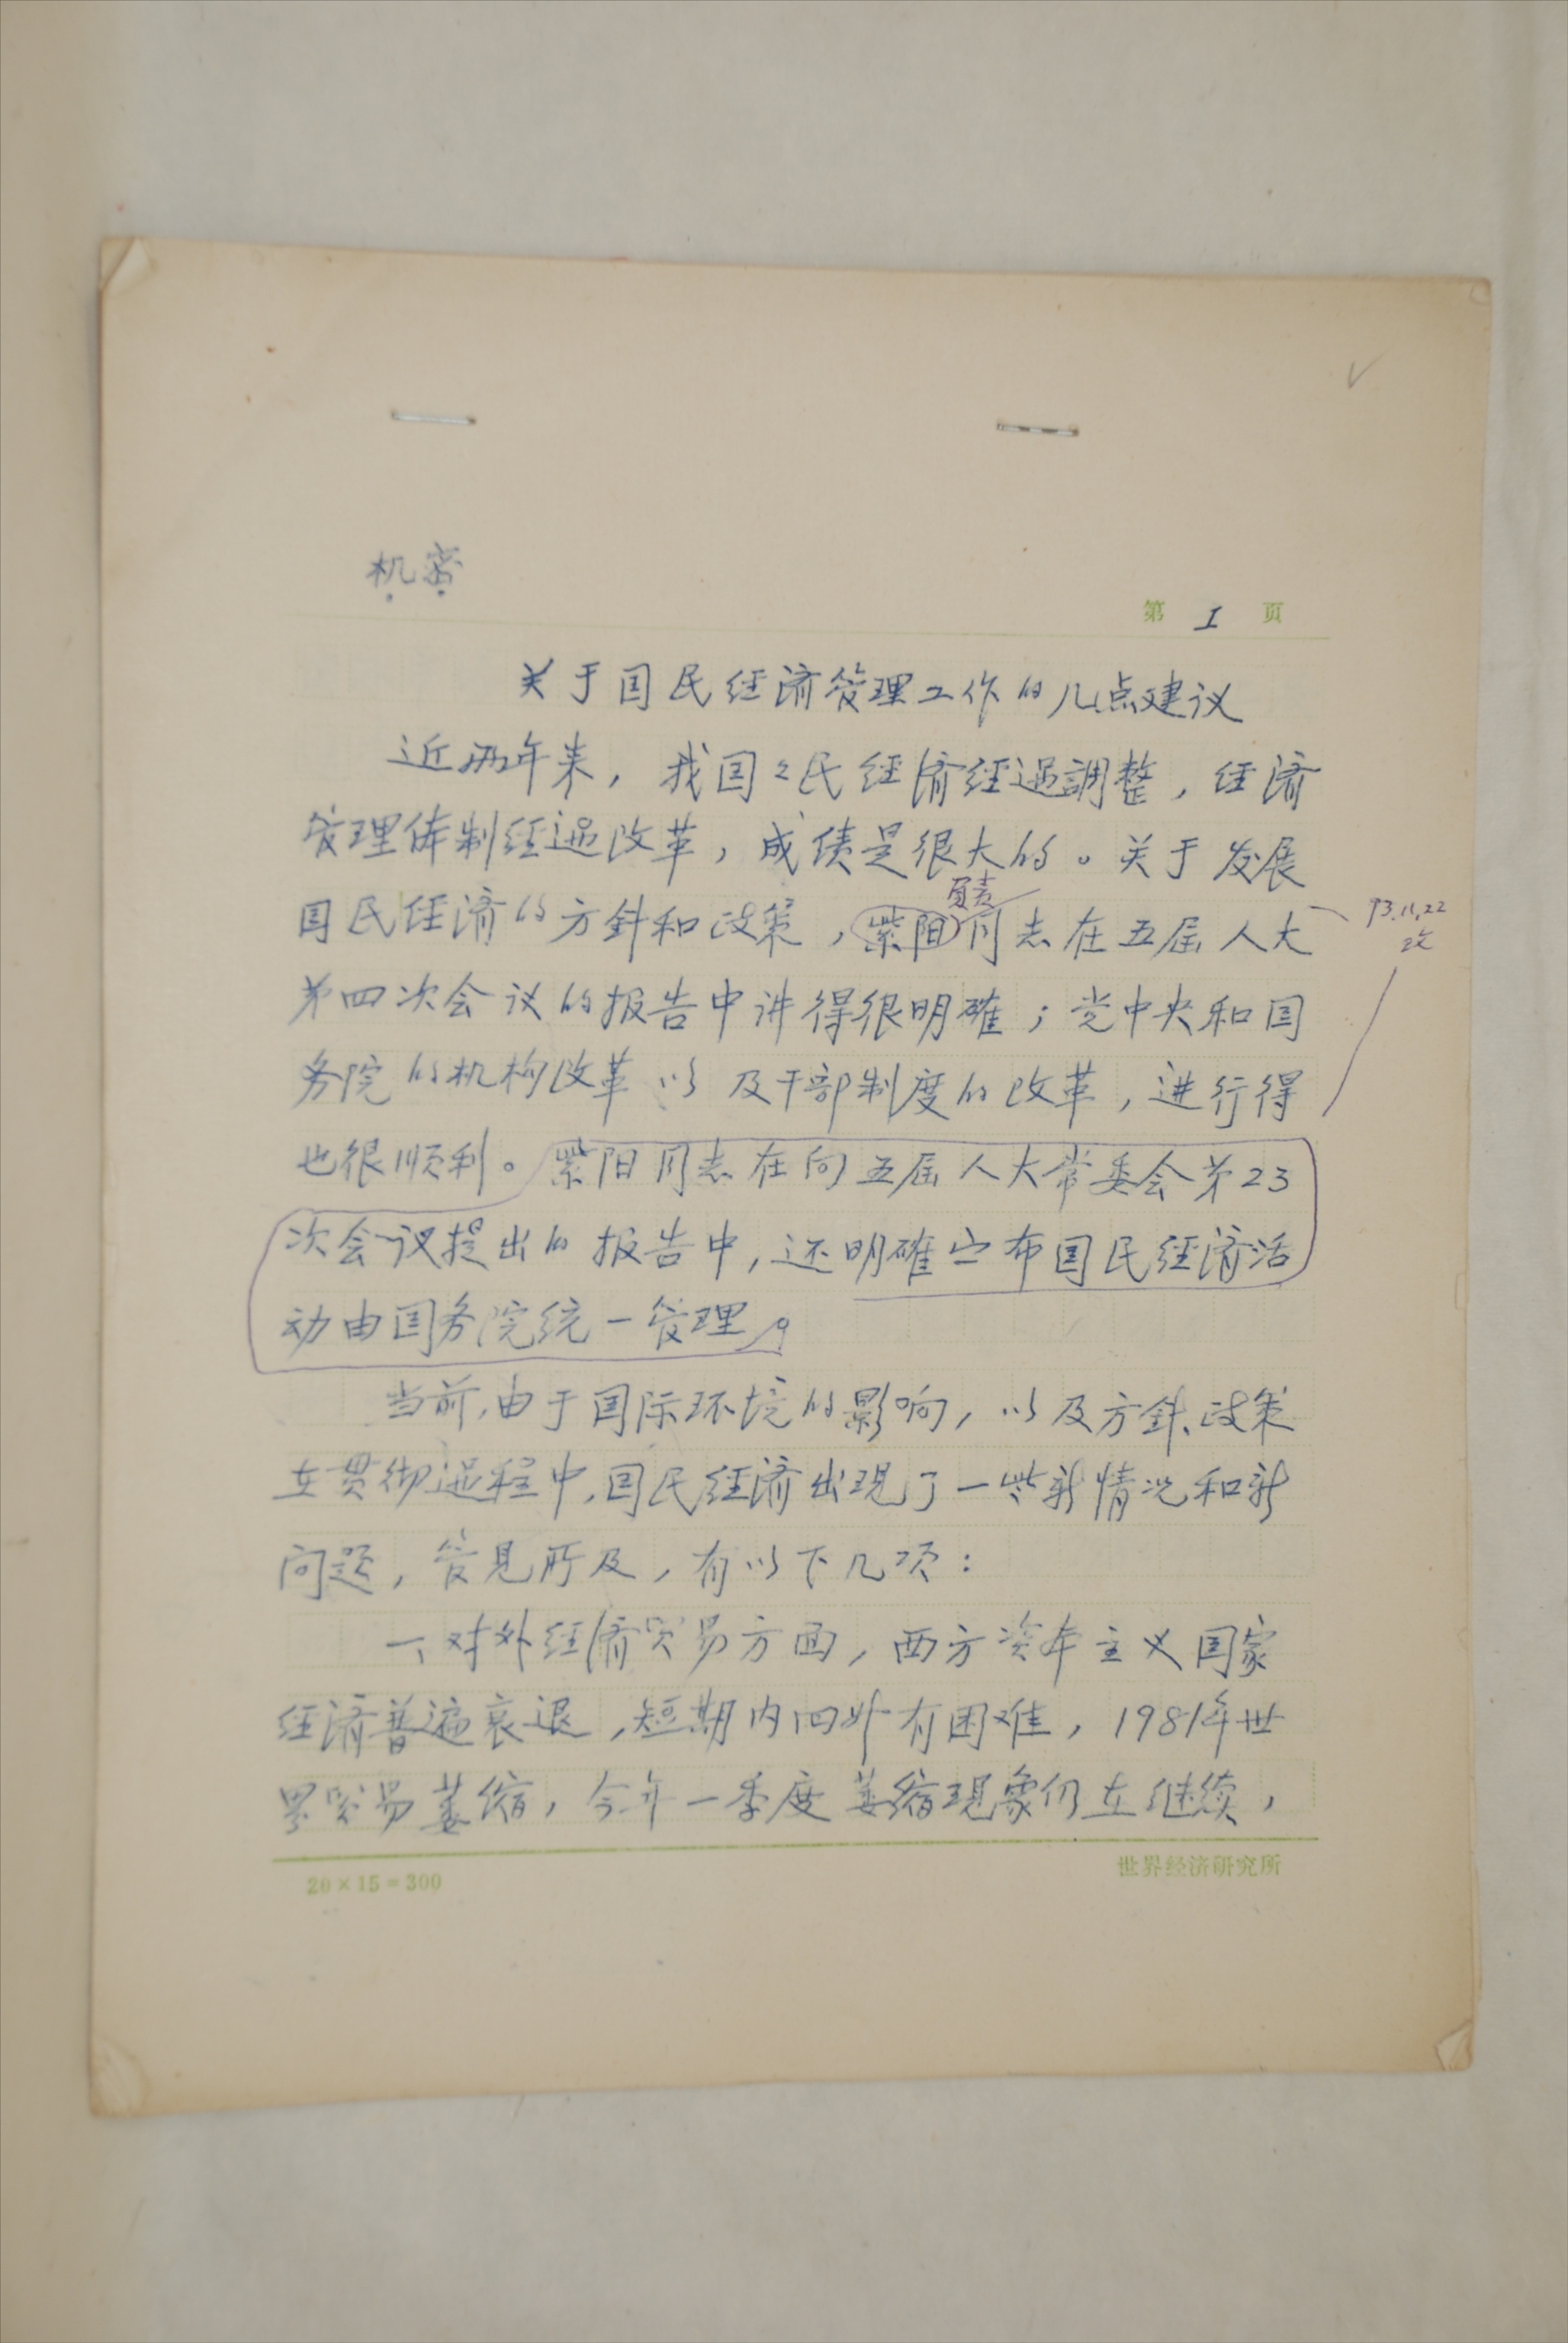 机密
第 1 页
关于国民经济管理工作的几点建议
近两年来，我国国民经济经过調整，经济
管理体制经过改革，成绩是很大的。关于发展
负责
国民经济的方針和政策，紫阳同志在五届人大
93.11.22
改
第四次会议的报告中讲得很明確；党中央和国
务院的机构改革以及干部制度的改革，进行得
也很顺利。紫阳同志在向五届人大常委会第23
次会议提出的报告中，还明確宣布国民经济活
动由国务院统一管理。
当前，由于国际环境的影响，以及方針、政策
在贯彻过程中，国民经济出现了一些新情况和新
问题，管见所及，有以下几项：
一、对外经济贸易方面，西方资本主义国家
经济普遍衰退，短期内回升有困难，1981年世
界贸易萎缩，今年一季度萎缩現象仍在继续，
20×15=300
世界经济研究所